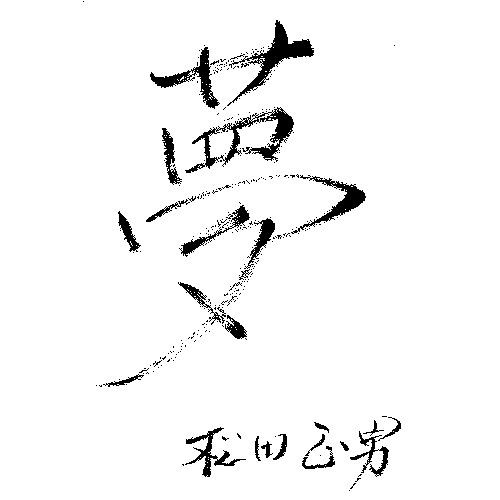 夢
松田正男